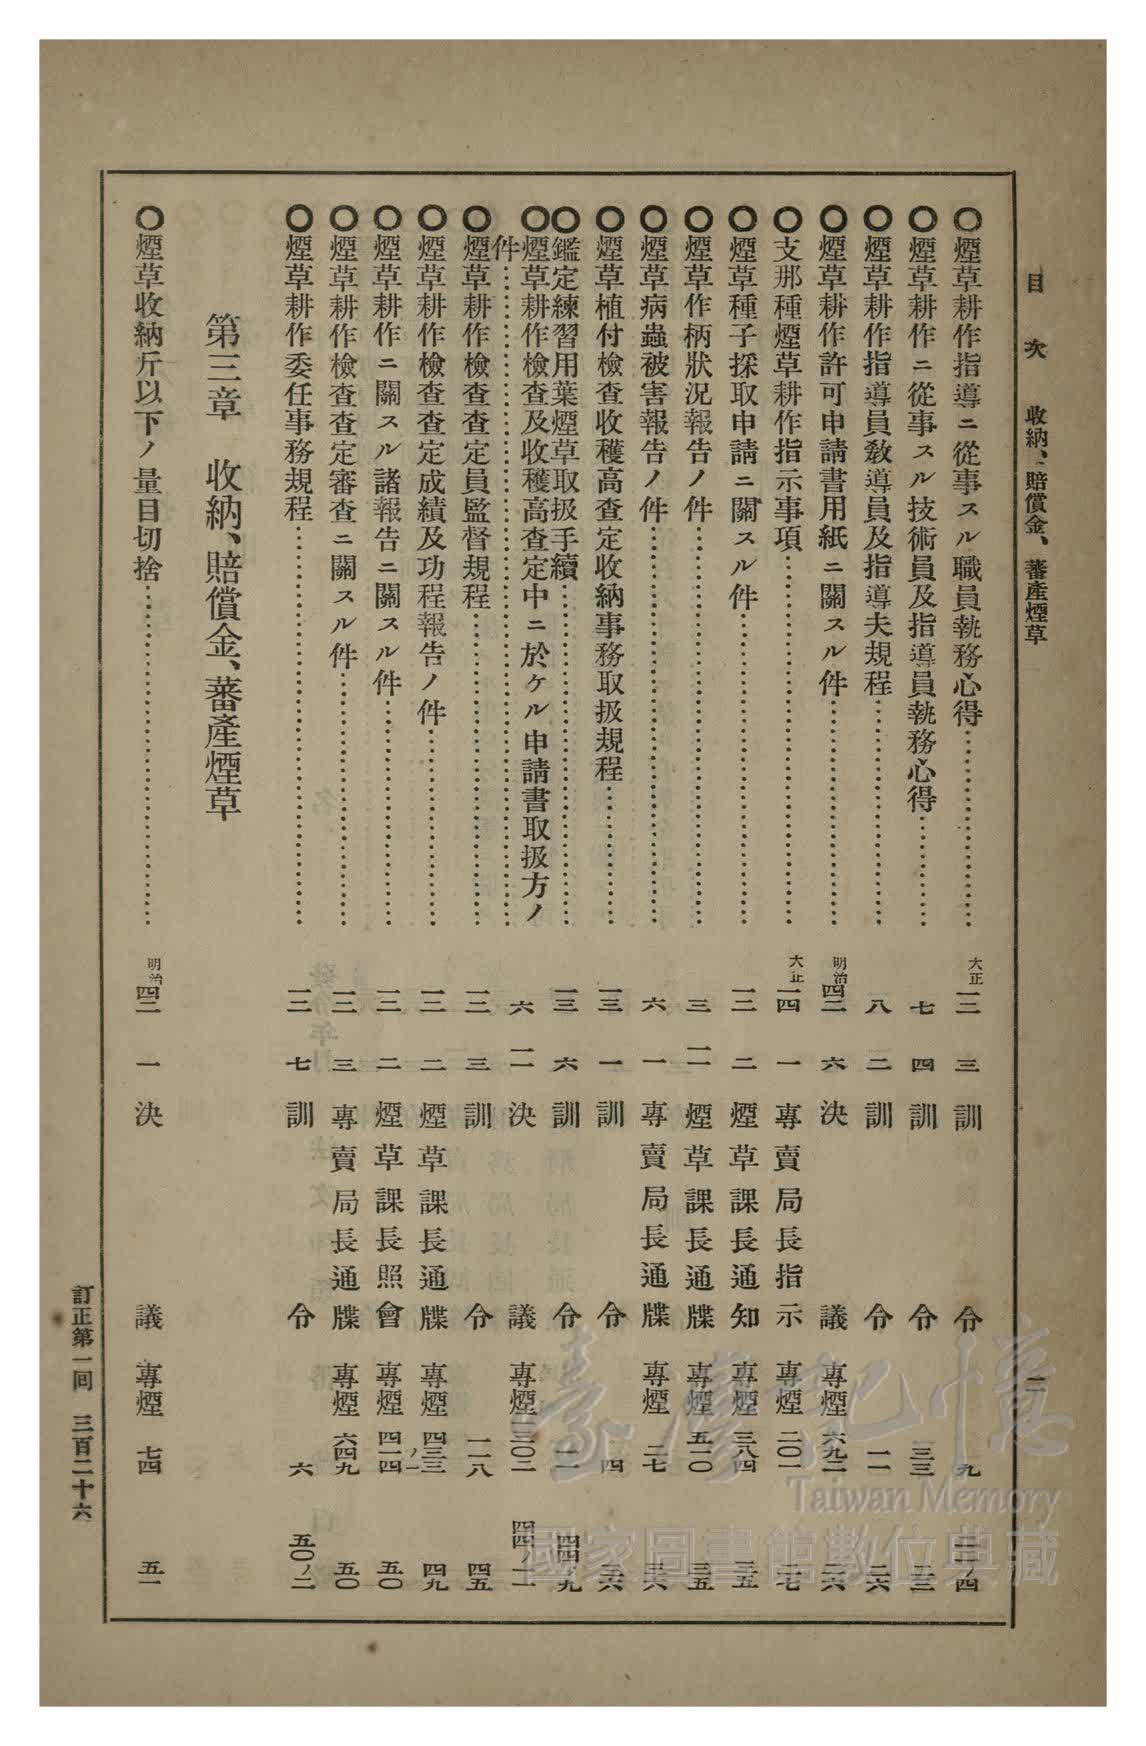 目次　收納、賠償金、蕃產煙草　二
〇煙草耕作指導ニ從事スル職員執務心得……大正一二　三　訓令　九
〇煙草耕作ニ從事スル技術員及指導員執務心得……七　四　訓令　三三　三三
〇煙草耕作指導員敎導員及指導夫規程……八　二　訓令　一一　三六
〇煙草耕作許可申請書用紙ニ關スル件……明治四二　六　決議　專煙　六九二　三六
支那種煙草耕作指示事項……大正一四　一　專賣局長指示　專煙　二〇一　三七
〇煙草種子採取申請ニ關スル件……一二　二　煙草課長通知　專煙　三八四　三五
〇煙草作柄狀況報告ノ件……三　一一　煙草課長通牒　專煙　五一〇　三五
〇煙草病蟲被害報告ノ件……六　一　專賣局長通牒　專煙　二七　三六
〇煙草植付檢查收穫高查定收納事務取扱規程……一三　一　訓令　四　三六
〇鑑定練習用葉煙草取扱手續……一三　六　訓令　一一　四四ノ九
〇煙草耕作檢查及收穫高查定中ニ於ケル申請書取扱方ノ
件……六　一一　決議　專煙　三〇二　四四ノ一一
〇煙草耕作檢查查定員監督規程……一二　三　訓令　一一八　四五
〇煙草耕作檢查查定成績及功程報告ノ件……一二　二　煙草課長通牒　專煙　四三三　四九
〇煙草耕作ニ關スル諸報告ニ關スル件……一二　二　煙草課長照會　專煙　四一四ノ一　五〇
〇煙草耕作檢查查定審查ニ關スル件……一二　三　專賣局長通牒　專煙　六四九　五〇
〇煙草耕作委任事務規程……一二　七　訓令　六　五〇ノ二
第三章　收納、賠償金、蕃產煙草
〇煙草收納斤以下ノ量目切捨……明治四二　一　決議　專煙　七四　五一
訂正第一回　三百二十六
臺灣記憶
Taiwan Memory
國家圖書館數位典藏